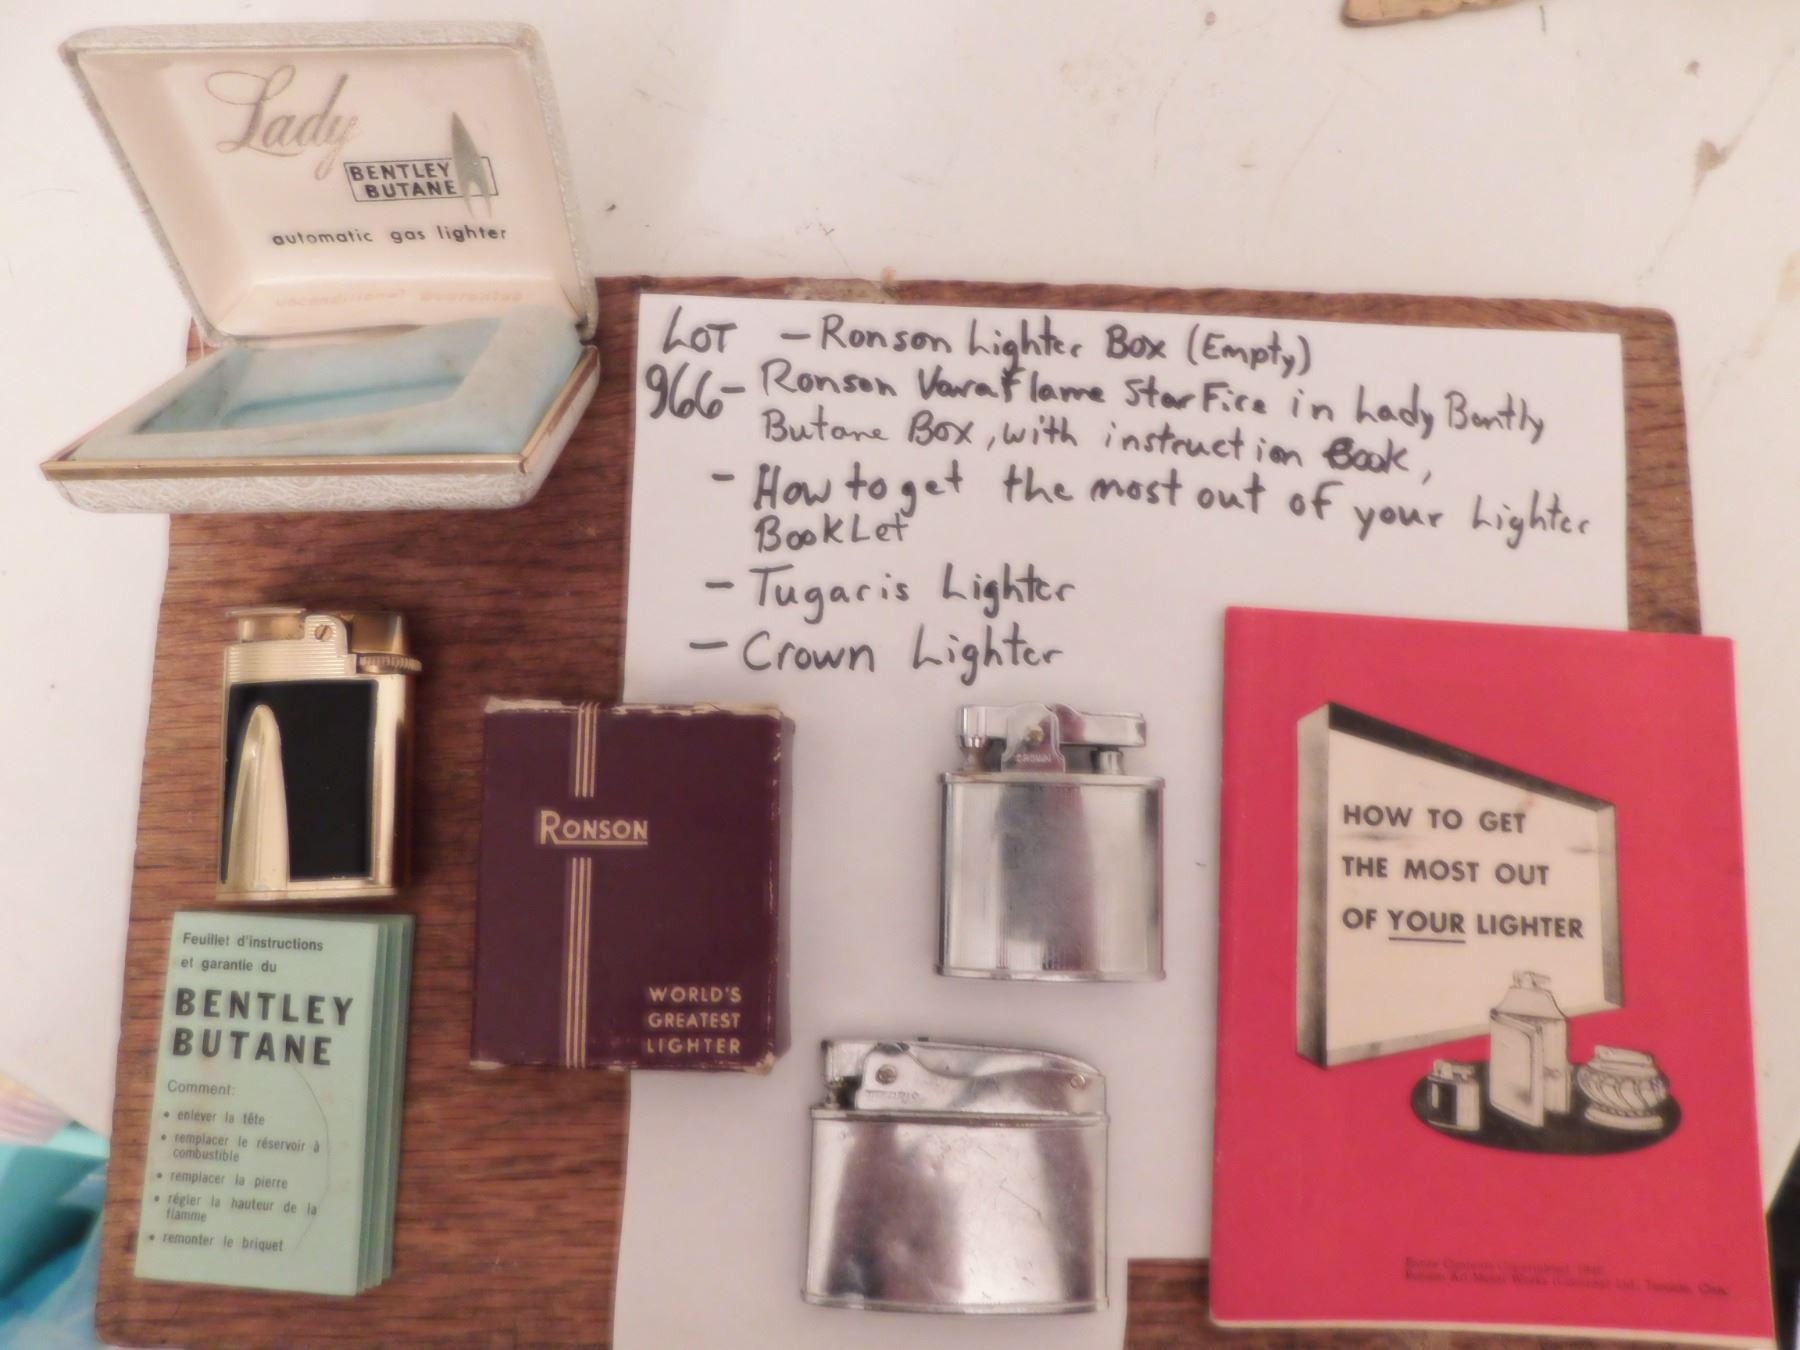 Lady
BENTLEY
BUTANE
automatic gas lighter
LOT - Ronson Lighter Box (Empty)
966 - Ronson VaraFlame StarFire in Lady Bently
Butane Box, with instruction Book,
- How to get the most out of your Lighter
BookLet
- Tugaris Lighter
- Crown Lighter
CROWN
RONSON
WORLD'S
GREATEST
LIGHTER
HOW TO GET
THE MOST OUT
OF YOUR LIGHTER
Feuillet d'instructions
et garantie du
BENTLEY
BUTANE
Comment:
• enlever la tête
• remplacer le réservoir à
combustible
• remplacer la pierre
• régler la hauteur de la
flamme
• remonter le briquet
Ronson Art Metal Works (Canada) Ltd., Toronto, Ont.